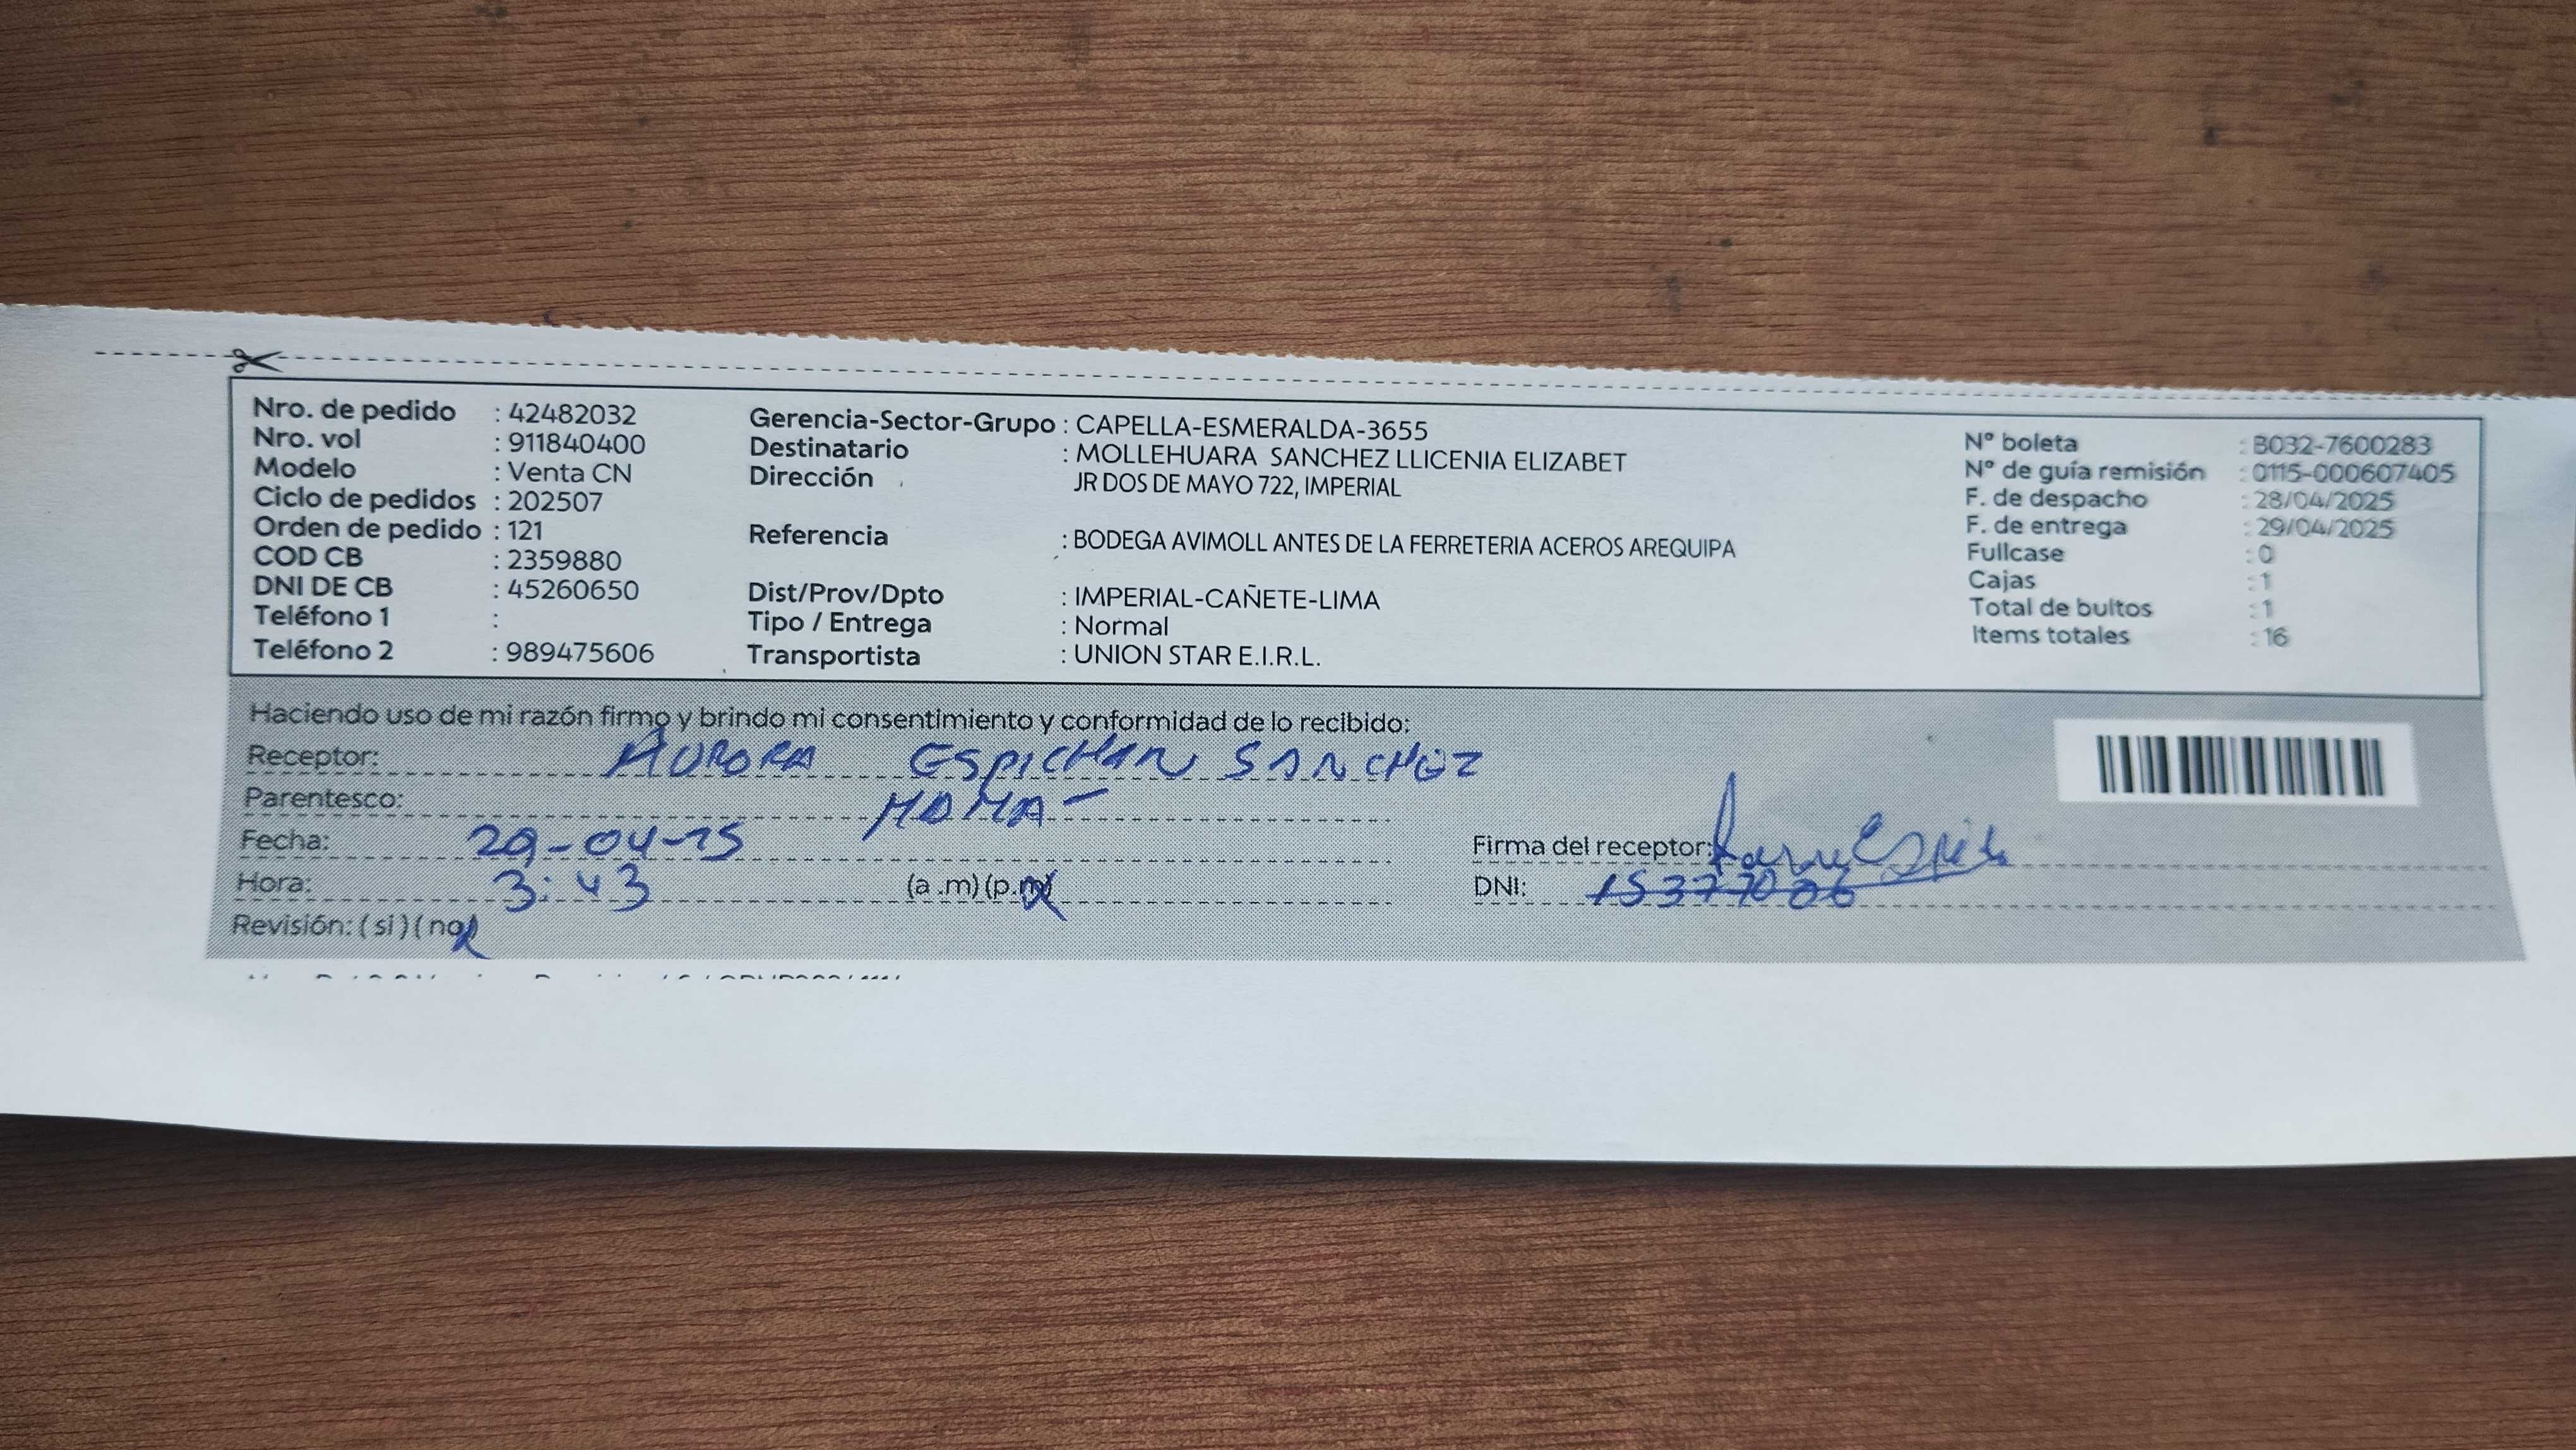 Nro. de pedido : 42482032
Nro. vol : 911840400
Modelo : Venta CN
Ciclo de pedidos : 202507
Orden de pedido : 121
COD CB : 2359880
DNI DE CB : 45260650
Teléfono 1 :
Teléfono 2 : 989475606
Gerencia-Sector-Grupo : CAPELLA-ESMERALDA-3655
Destinatario : MOLLEHUARA SANCHEZ LLICENIA ELIZABET
Dirección JR DOS DE MAYO 722, IMPERIAL
Referencia : BODEGA AVIMOLL ANTES DE LA FERRETERIA ACEROS AREQUIPA
Dist/Prov/Dpto : IMPERIAL-CAÑETE-LIMA
Tipo / Entrega : Normal
Transportista : UNION STAR E.I.R.L.
N° boleta : B032-7600283
N° de guía remisión : 0115-000607405
F. de despacho : 28/04/2025
F. de entrega : 29/04/2025
Fullcase : 0
Cajas : 1
Total de bultos : 1
Items totales : 16
Haciendo uso de mi razón firmo y brindo mi consentimiento y conformidad de lo recibido:
Receptor: AURORA ESPICHAN SANCHEZ
Parentesco: MAMA-
Fecha: 29-04-25
Hora: 3:43 (a.m)(p.m)
Revisión: (si)(no)
Firma del receptor:
DNI: 15377086